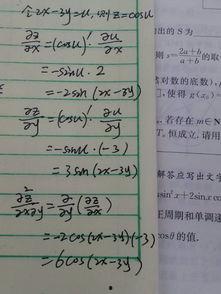 令2x-3y=u,则z=cosu
∂z/∂x=(cosu)'·∂u/∂x
=-sinu·2
=-2sin(2x-3y)
∂z/∂y=(cosu)'·∂u/∂y
=-sinu·(-3)
=3sin(2x-3y)
∂²z/∂x∂y=∂/∂y(∂z/∂x)
=-2cos(2x-3y)(-3)
=6cos(2x-3y)
出的S为
则 s=(2a+b)/(a+b) 的取
然对数的底数),
],使得 g(x₀)=
,若存在 m∈N
T,恒成立,请用
解答应写出文字
sin²x+2sinx co
正周期和单调递
cosθ的值.